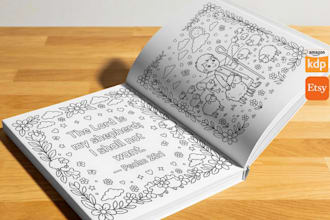 The Lord is
my Shepherd;
I shall not
want.
— Psalm 23:1
amazon
kdp
Etsy